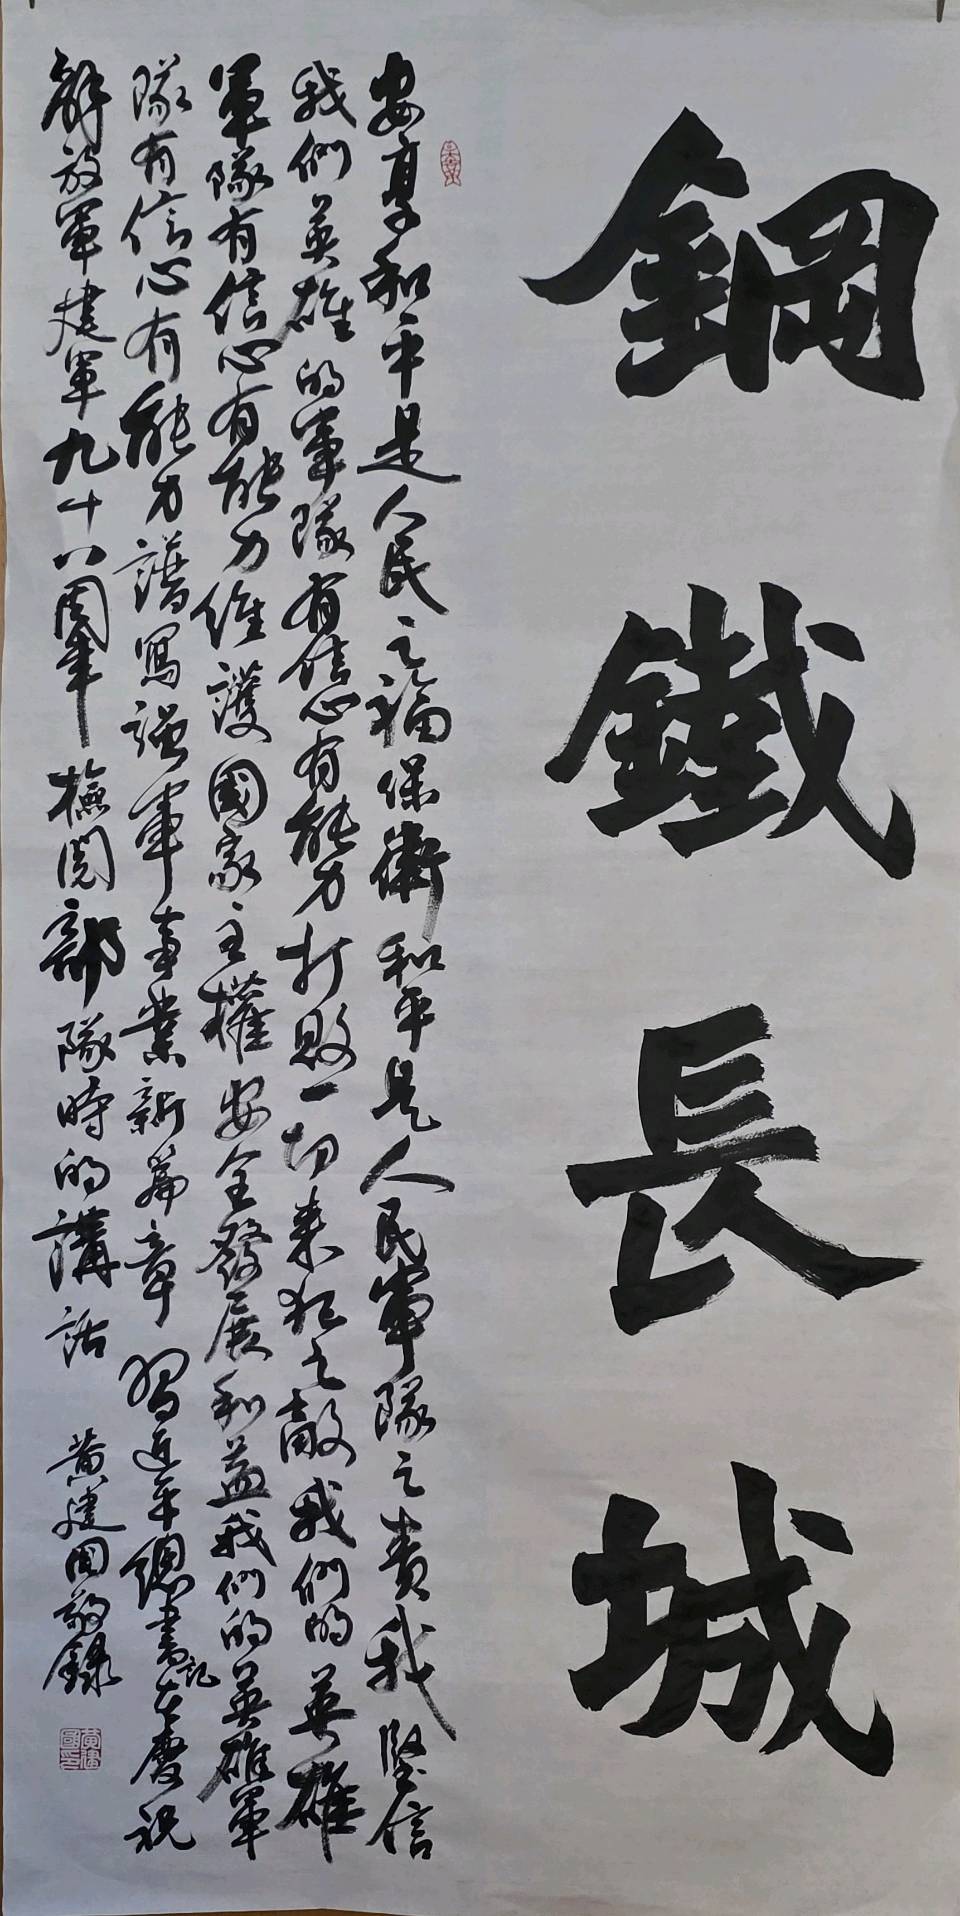 鋼鐵長城
安享和平是人民之福保衛和平是人民軍隊之責我堅信
我們英雄的軍隊有信心有能力打敗一切來犯之敵我們的英雄
軍隊有信心有能力維護國家主權安全發展利益我們的英雄軍
隊有信心有能力譜寫強軍事業新篇章 習近平總書記在慶祝
解放軍建軍九十八周年檢閱部隊時的講話 黃建國敬錄
黃建國印